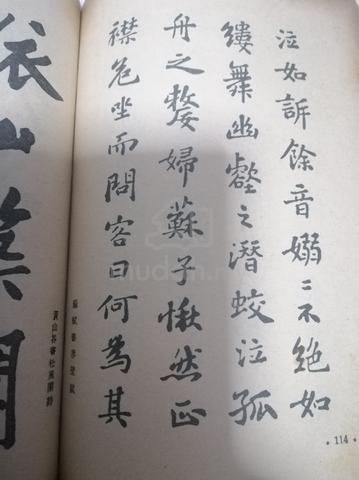 泣如訴餘音嫋〻不絕如
縷舞幽壑之潛蛟泣孤
舟之嫠婦蘇子愀然正
襟危坐而問客曰何為其
·114·
蘇軾書赤壁賦
黃山谷書松風閣詩
依山築閣
mudah.my